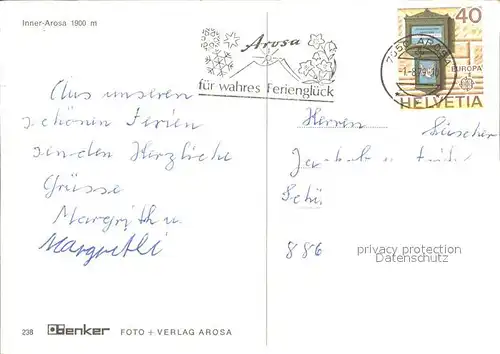 Inner-Arosa 1900 m
Arosa
für wahres Ferienglück
7050 AROSA
-1.-8.79-
40
EUROPA
HELVETIA
Aus unseren
schönen Ferien
senden Herzliche
Grüsse
Margrith u.
Margritli
Herren
886
privacy protection
Datenschutz
238 Benker FOTO + VERLAG AROSA